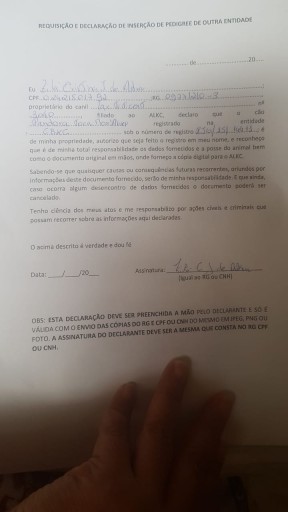 REQUISIÇÃO E DECLARAÇÃO DE INSERÇÃO DE PEDIGREE DE OUTRA ENTIDADE
de 20
Eu
CPF RG
proprietário do canil nº
filiado ao ALKC, declaro que o cão
registrado na entidade
CBKC sob o número de registro e
de minha propriedade, autorizo que seja feito o registro em meu nome, e reconheço
que é de minha total responsabilidade os dados fornecidos e a posse do animal bem
como o documento original em mãos, onde forneço a cópia digital para o ALKC.
Sabendo-se que quaisquer causas ou consequências futuras recorrentes, oriundos por
informações deste documento fornecido, serão de minha responsabilidade. E que ainda,
caso ocorra algum desencontro de dados fornecidos o documento poderá ser
cancelado.
Tenho ciência dos meus atos e me responsabilizo por ações cíveis e criminais que
possam recorrer sobre as informações aqui declaradas.
O acima descrito é verdade e dou fé
Data: ___/___/20___ Assinatura:
(Igual ao RG ou CNH)
OBS: ESTA DECLARAÇÃO DEVE SER PREENCHIDA A MÃO PELO DECLARANTE E SÓ É
VÁLIDA COM O ENVIO DAS CÓPIAS DO RG E CPF OU CNH DO MESMO EM JPEG, PNG OU
FOTO. A ASSINATURA DO DECLARANTE DEVE SER A MESMA QUE CONSTA NO RG CPF
OU CNH.